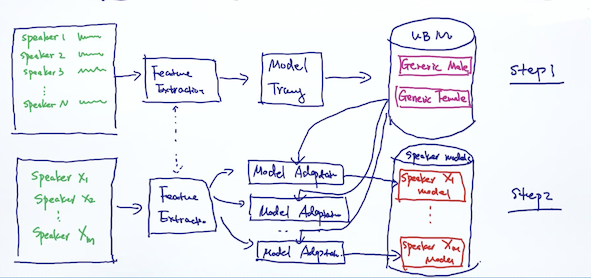 speaker 1
speaker 2
speaker 3
⋮
speaker N
Feature
Extraction
Model
Trang
UBM
Generic Male
Generic Female
Step 1
Speaker X1
Speaker X2
⋮
Speaker Xm
Feature
Extraction
Model Adaptan
Model Adaptan
..
Model Adaptan
Speaker models
Speaker X1
model
⋮
Speaker Xm
Model
Step 2